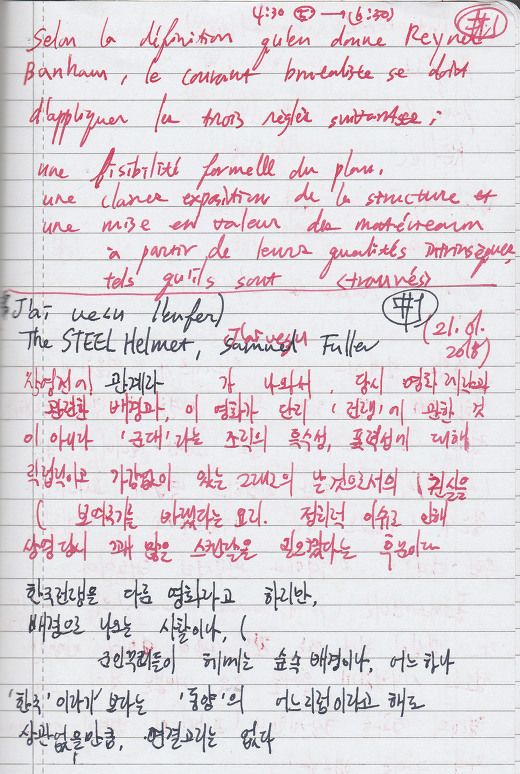 4:30 ⑤ → (6:30) #1
Selon la définition qu'en donne Reyner
Banham, le courant brutaliste se doit
d'appliquer les trois règles suivantes :
une lisibilité formelle du plan,
une claire exposition de la structure et
une mise en valeur des matériaux
à partir de leurs qualités intrinsèques,
tels qu'ils sont <trouvés>
J'ai vécu l'enfer) #1
The STEEL Helmet, Samuel Fuller (21.01.
2018)
상영전에 관계라 가 나와서, 당시 영화 제작과
관련한 배경과, 이 영화가 단지 '전쟁'에 관한 것
이 아니라 '군대'라는 조직의 특수성, 폭력성에 대해
직접적이고 가감없이 있는 그대로의 날 것으로서의 (진실을
( 보여주기를 바랬다는 요지. 정치적 이슈로 인해
상영 당시 꽤 많은 스캔들을 일으켰다는 후문이다
한국전쟁을 다룬 영화라고 하지만,
배경으로 나오는 사찰이나, (
군인무리들이 헤매는 숲속 배경이나, 어느 하나
'한국'이라기 보다는 '동양'의 어느지점이라고 해도
상관없을만큼, 연결고리는 없다